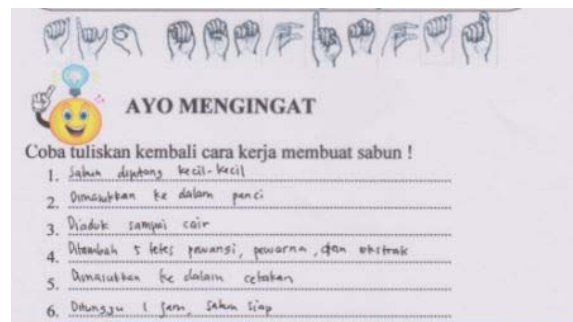 AYO MENGINGAT
Coba tuliskan kembali cara kerja membuat sabun !
1. Sabun dipotong kecil-kecil
2. Dimasukkan ke dalam panci
3. Diaduk sampai cair
4. Ditambah 5 tetes pewangi, pewarna, dan ekstrak
5. Dimasukkan ke dalam cetakan
6. Ditunggu 1 jam, Sabun Siap